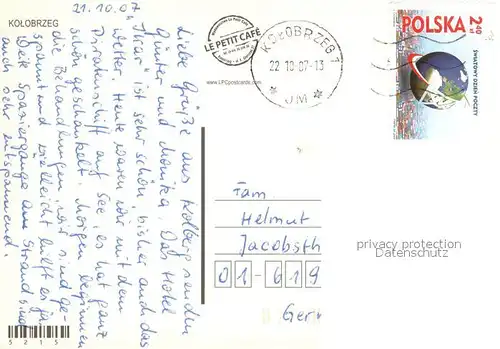 KOŁOBRZEG
21.10.07
Liebe Grüße aus Kolberg senden
Günter und Monika. Das Hotel
"Ikar" ist sehr schön, bisher auch das
Wetter. Heute waren wir mit dem
Piratenschiff auf See, es hat ganz
schön geschaukelt. Morgen beginnen
die Behandlungen, wir sind ge-
spannt und vielleicht hilft es ja.
Die Spaziergänge am Strand sind
auch sehr entspannend.
LE PETIT CAFE
www.LPCpostcards.com
KOŁOBRZEG 1
22 10 07-13
* JM *
POLSKA 2,40 zł
ŚWIATOWY DZIEŃ POCZTY
Fam
Helmut
Jacobsth
01-619
Ger
privacy protection
Datenschutz
5215